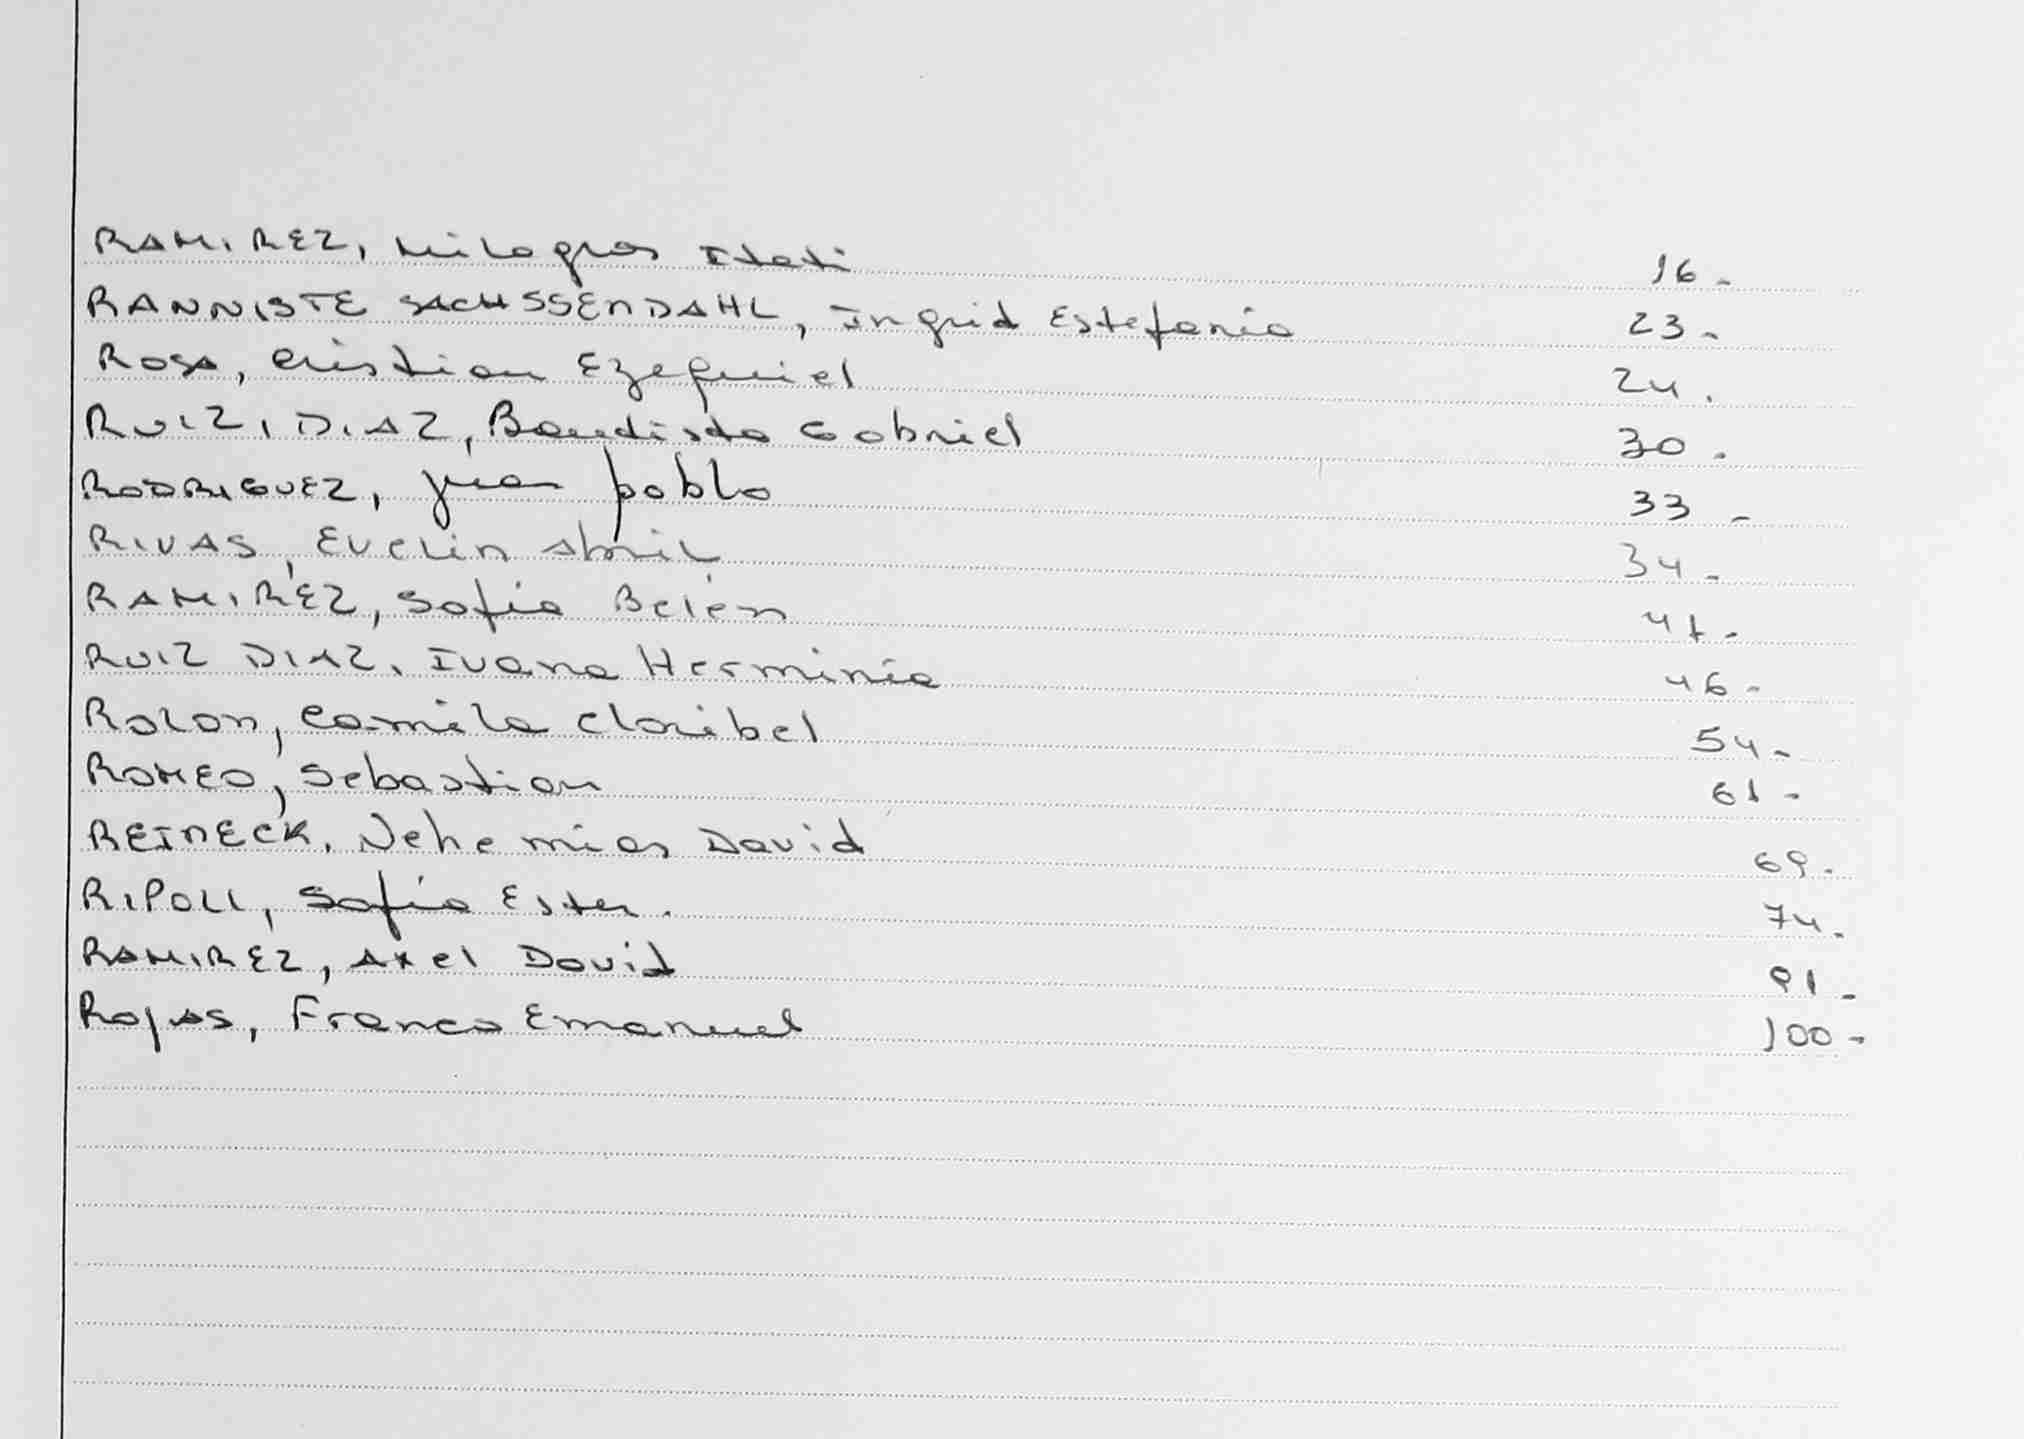 RAMIREZ, Milagros Itati 16-
RANNISTE SACHSSENDAHL, Ingrid Estefania 23-
ROSA, Cristian Ezequiel 24.
RUIZ, DIAZ, Bautista Gabriel 30.
RODRIGUEZ, Juan pablo 33-
RIVAS, Evelin Abril 34-
RAMIREZ, Sofia Belén 41-
RUIZ DIAZ, Ivana Herminia 46-
ROLON, Camila Claribel 54-
ROMEO, Sebastian 61-
REINECK, Nehemias David 69.
RIPOLL, Sofia Ester. 74.
RAMIREZ, Axel David 91-
ROJAS, Franco Emanuel 100-